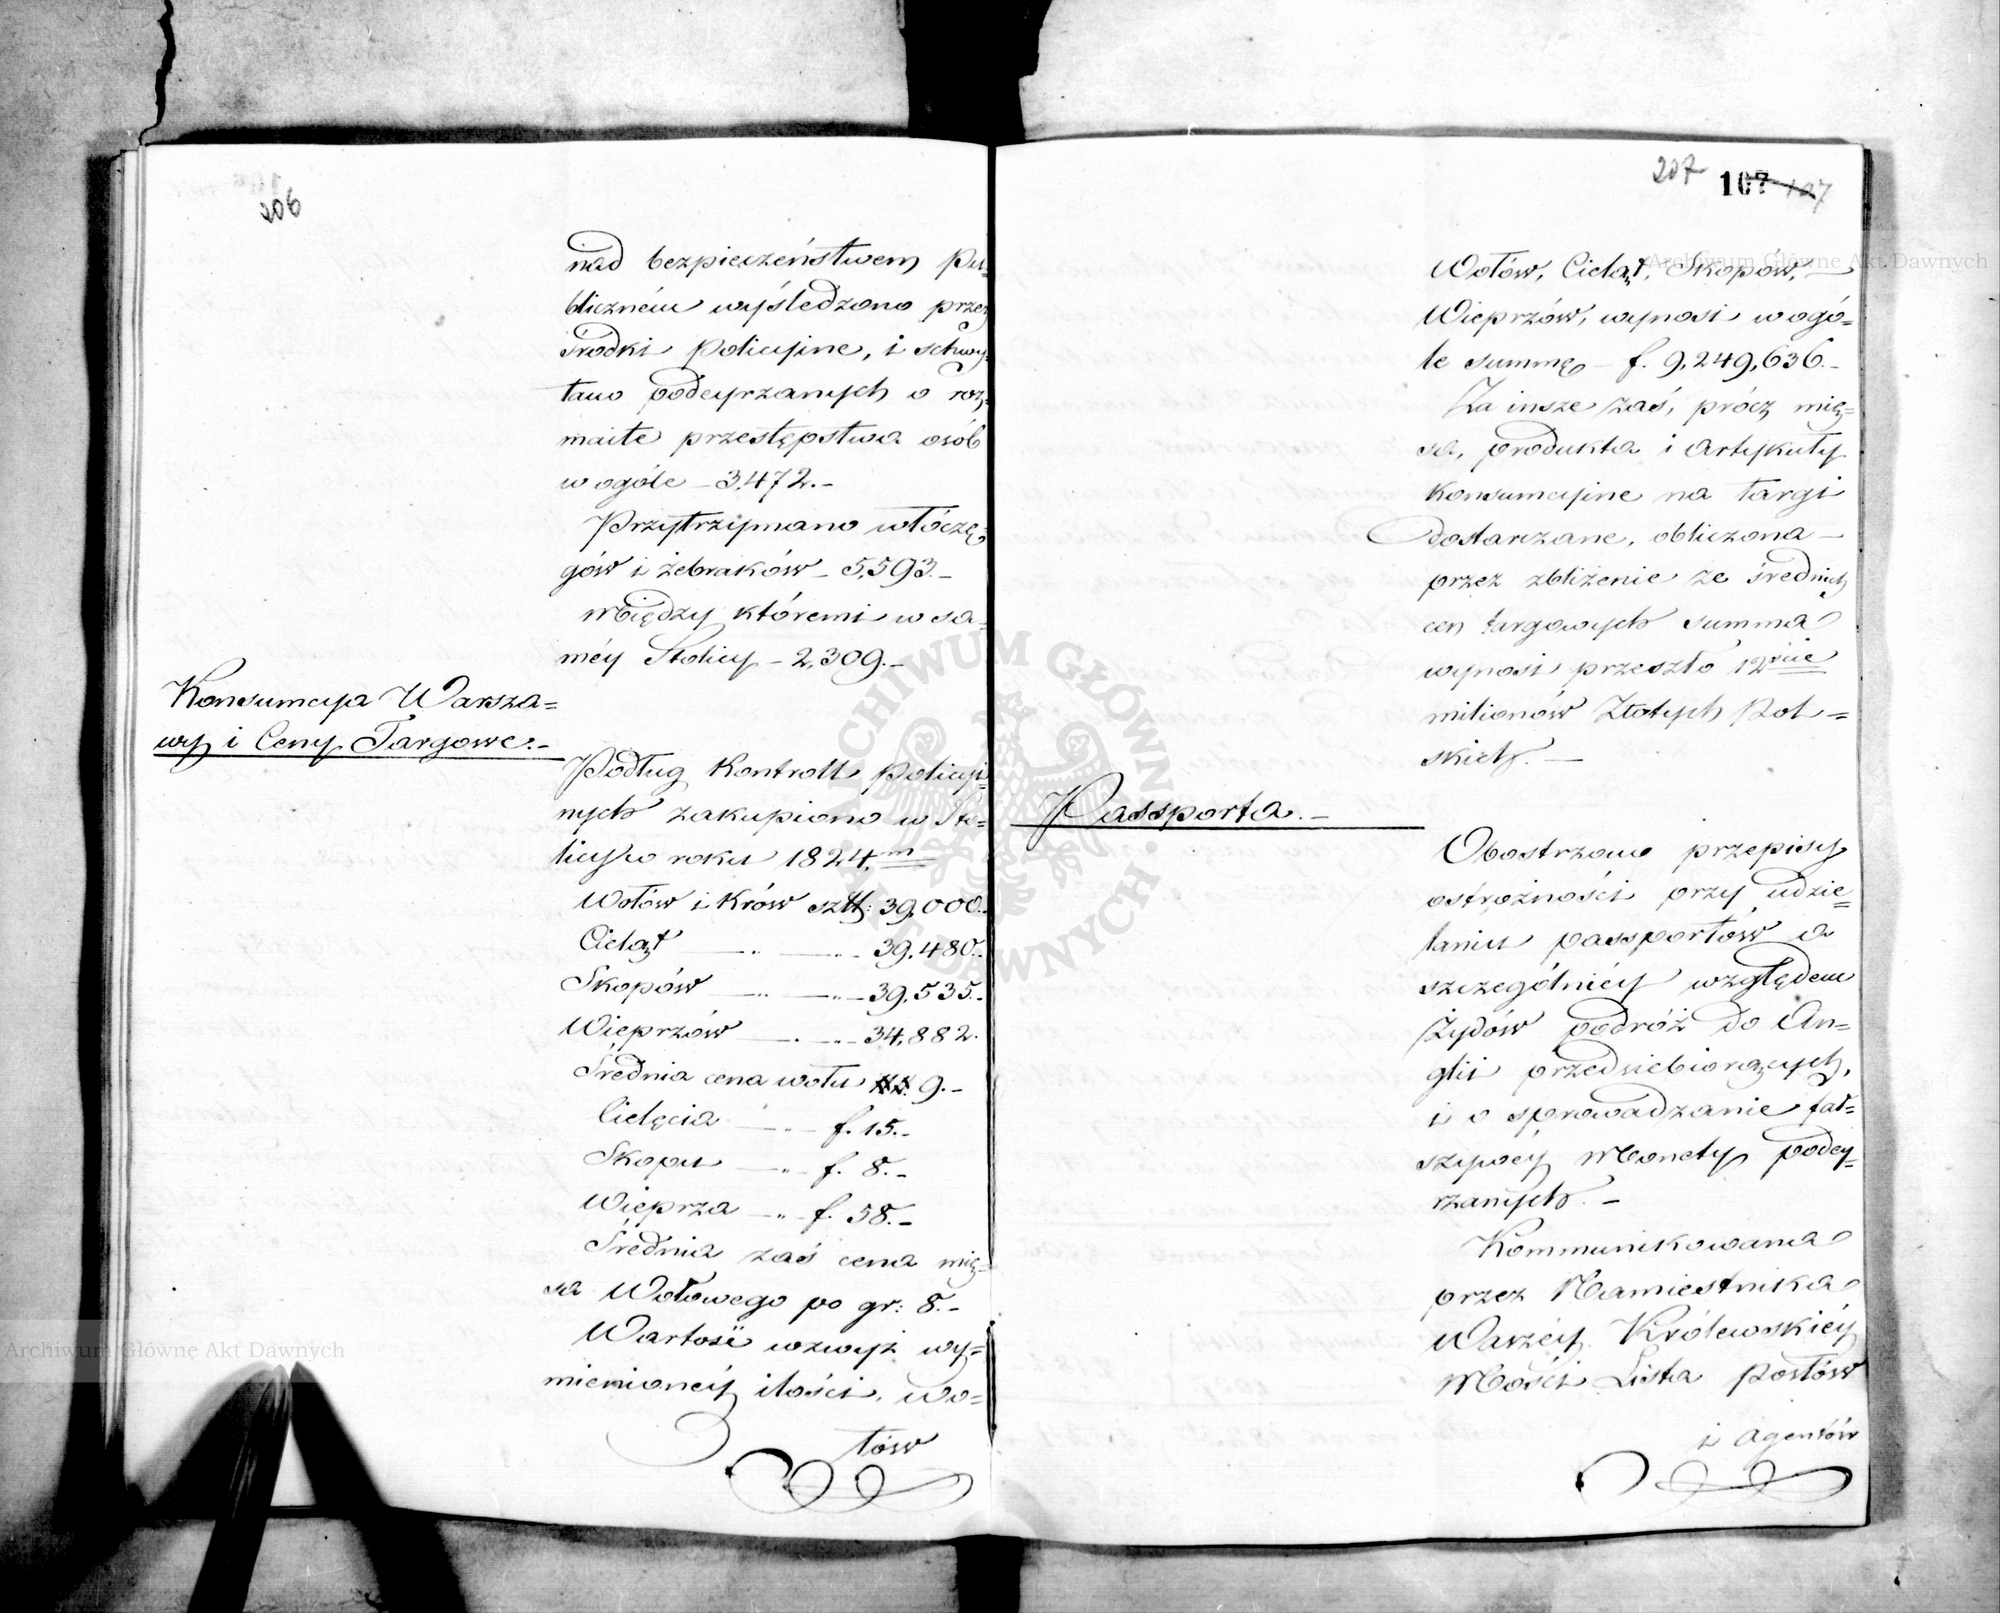 206
nad bezpieczeństwem Pu-
bliczném wyśledzono przez
środki Policyjne, i schwy-
tano podeyrzanych o roz-
maite przestępstwa osób
w ogóle – 3.472.–
Przytrzymano włóczę-
gów i żebraków – 5,593.–
Między któremi w sa-
méy Stolicy – 2,309.–
Konsumcya Warsza=
wy i Ceny Targowe.–
Podług Kontroll Policyi-
nych zakupiono w Sto-
licy w roku 1824.m
Wołów i Krów sztk: 39,000.
Cieląt — „ — „ – 39.480.
Skopów — „ — „ – 39.535.
Wieprzów — „ – 34,882.
Średnia cena wołu ## 9.–
Cielęcia — „ f. 15.–
Skopu — „ – f. 8.–
Wieprza – „ – f. 58.–
Średnia zaś cena mię-
sa Wołowego po gr: 8.–
Wartość wzwyż wy=
mienionéy ilości, Wo-
łów
207 107 107
Wołów, Cieląt, Skopów, —
Wieprzów, wynosi w ogó=
le summę – f. 9,249,636.–
Za insze zaś, prócz mię=
sa, produkta i Artykuły
Konsumcyine na targi
dostarczane, obliczona –
przez zbliżenie ze średnich
cen targowych summa
wynosi przeszło 12ście
milionów Złotych Pol=
skich. —
Passporta.–
Obostrzono przepisy
ostrożności przy udzie=
laniu passportów a
szczególniéy względem
Żydów podróż do An=
glii przedsiebiorących,
i o sprowadzanie fał=
szywéy Monety podey=
rzanych. –
Kommunikowana
przez Namiestnika
Waszéy Królewskiéy
Mości Lista Posłów
i Agentów
Archiwum Główne Akt Dawnych
Archiwum Główne Akt Dawnych
ARCHIWUM GŁÓWNE AKT DAWNYCH